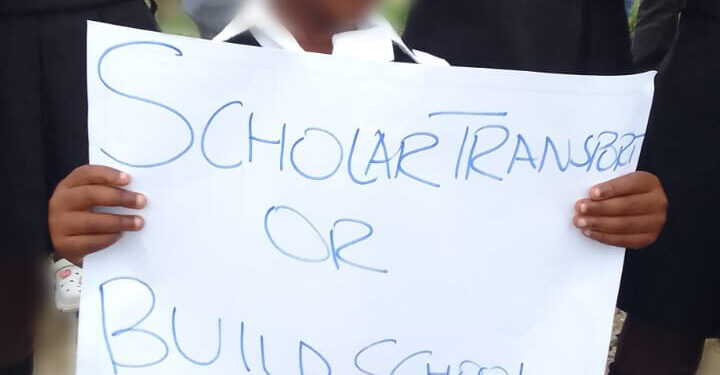 SCHOLAR TRANSPORT
OR
BUILD SCHOOL